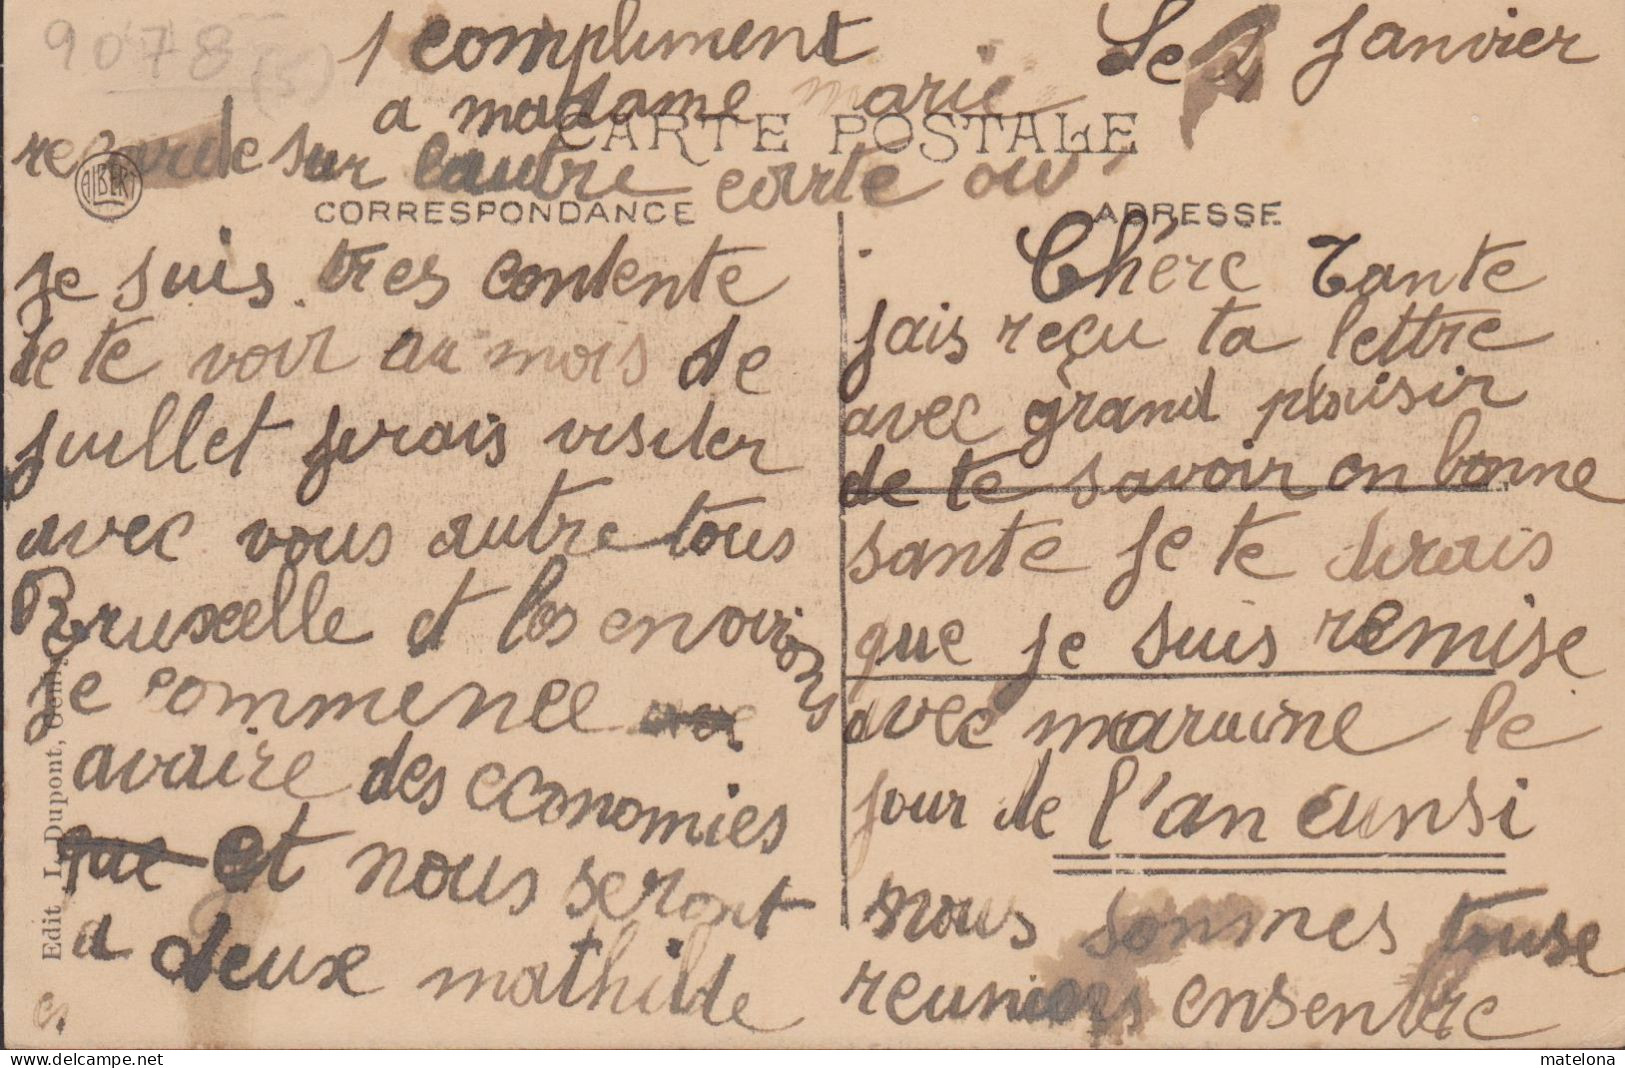 9078 (5)
1 compliment
a madame marie
regarde sur l'autre carte ou
Le 4 Janvier
CARTE POSTALE
ALBERT
CORRESPONDANCE
ADRESSE
Chère Tante
jais reçu ta lettre
avec grand plaisir
de te savoir en bonne
sante je te dirais
que je suis remise
avec maraine le
jour de l'an einsi
nous sommes touse
reuniers ensenbre
je suis tres contente
de te voir au mois de
juillet jirais visiter
avec vous autre tous
Bruxelle et les environs
je commence
avaire des economies
que et nous seront
a deux mathilde
Edit. L. Dupont,
matelona